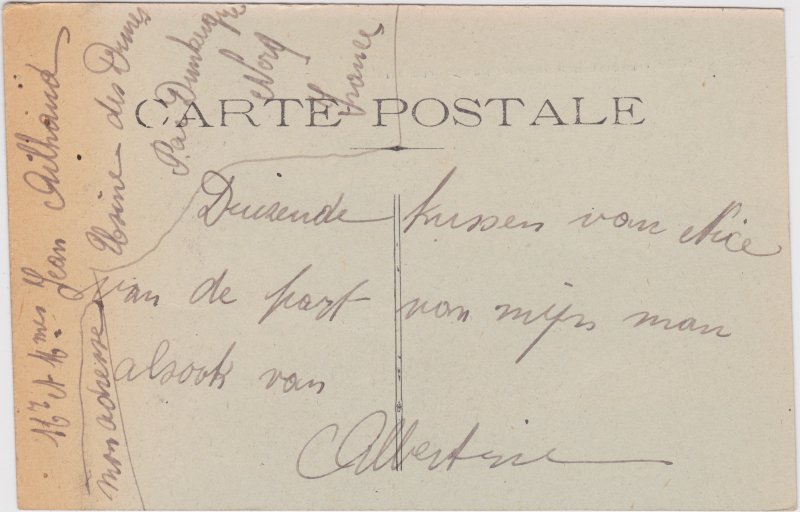 CARTE POSTALE
Duizende kussen van Nice
van de part van mijn man
alsook van
Albertine
Mr et Mmes Jean Ailhaud
mon adresse Usine des Dunes
Par Dunkerque
Nord
France